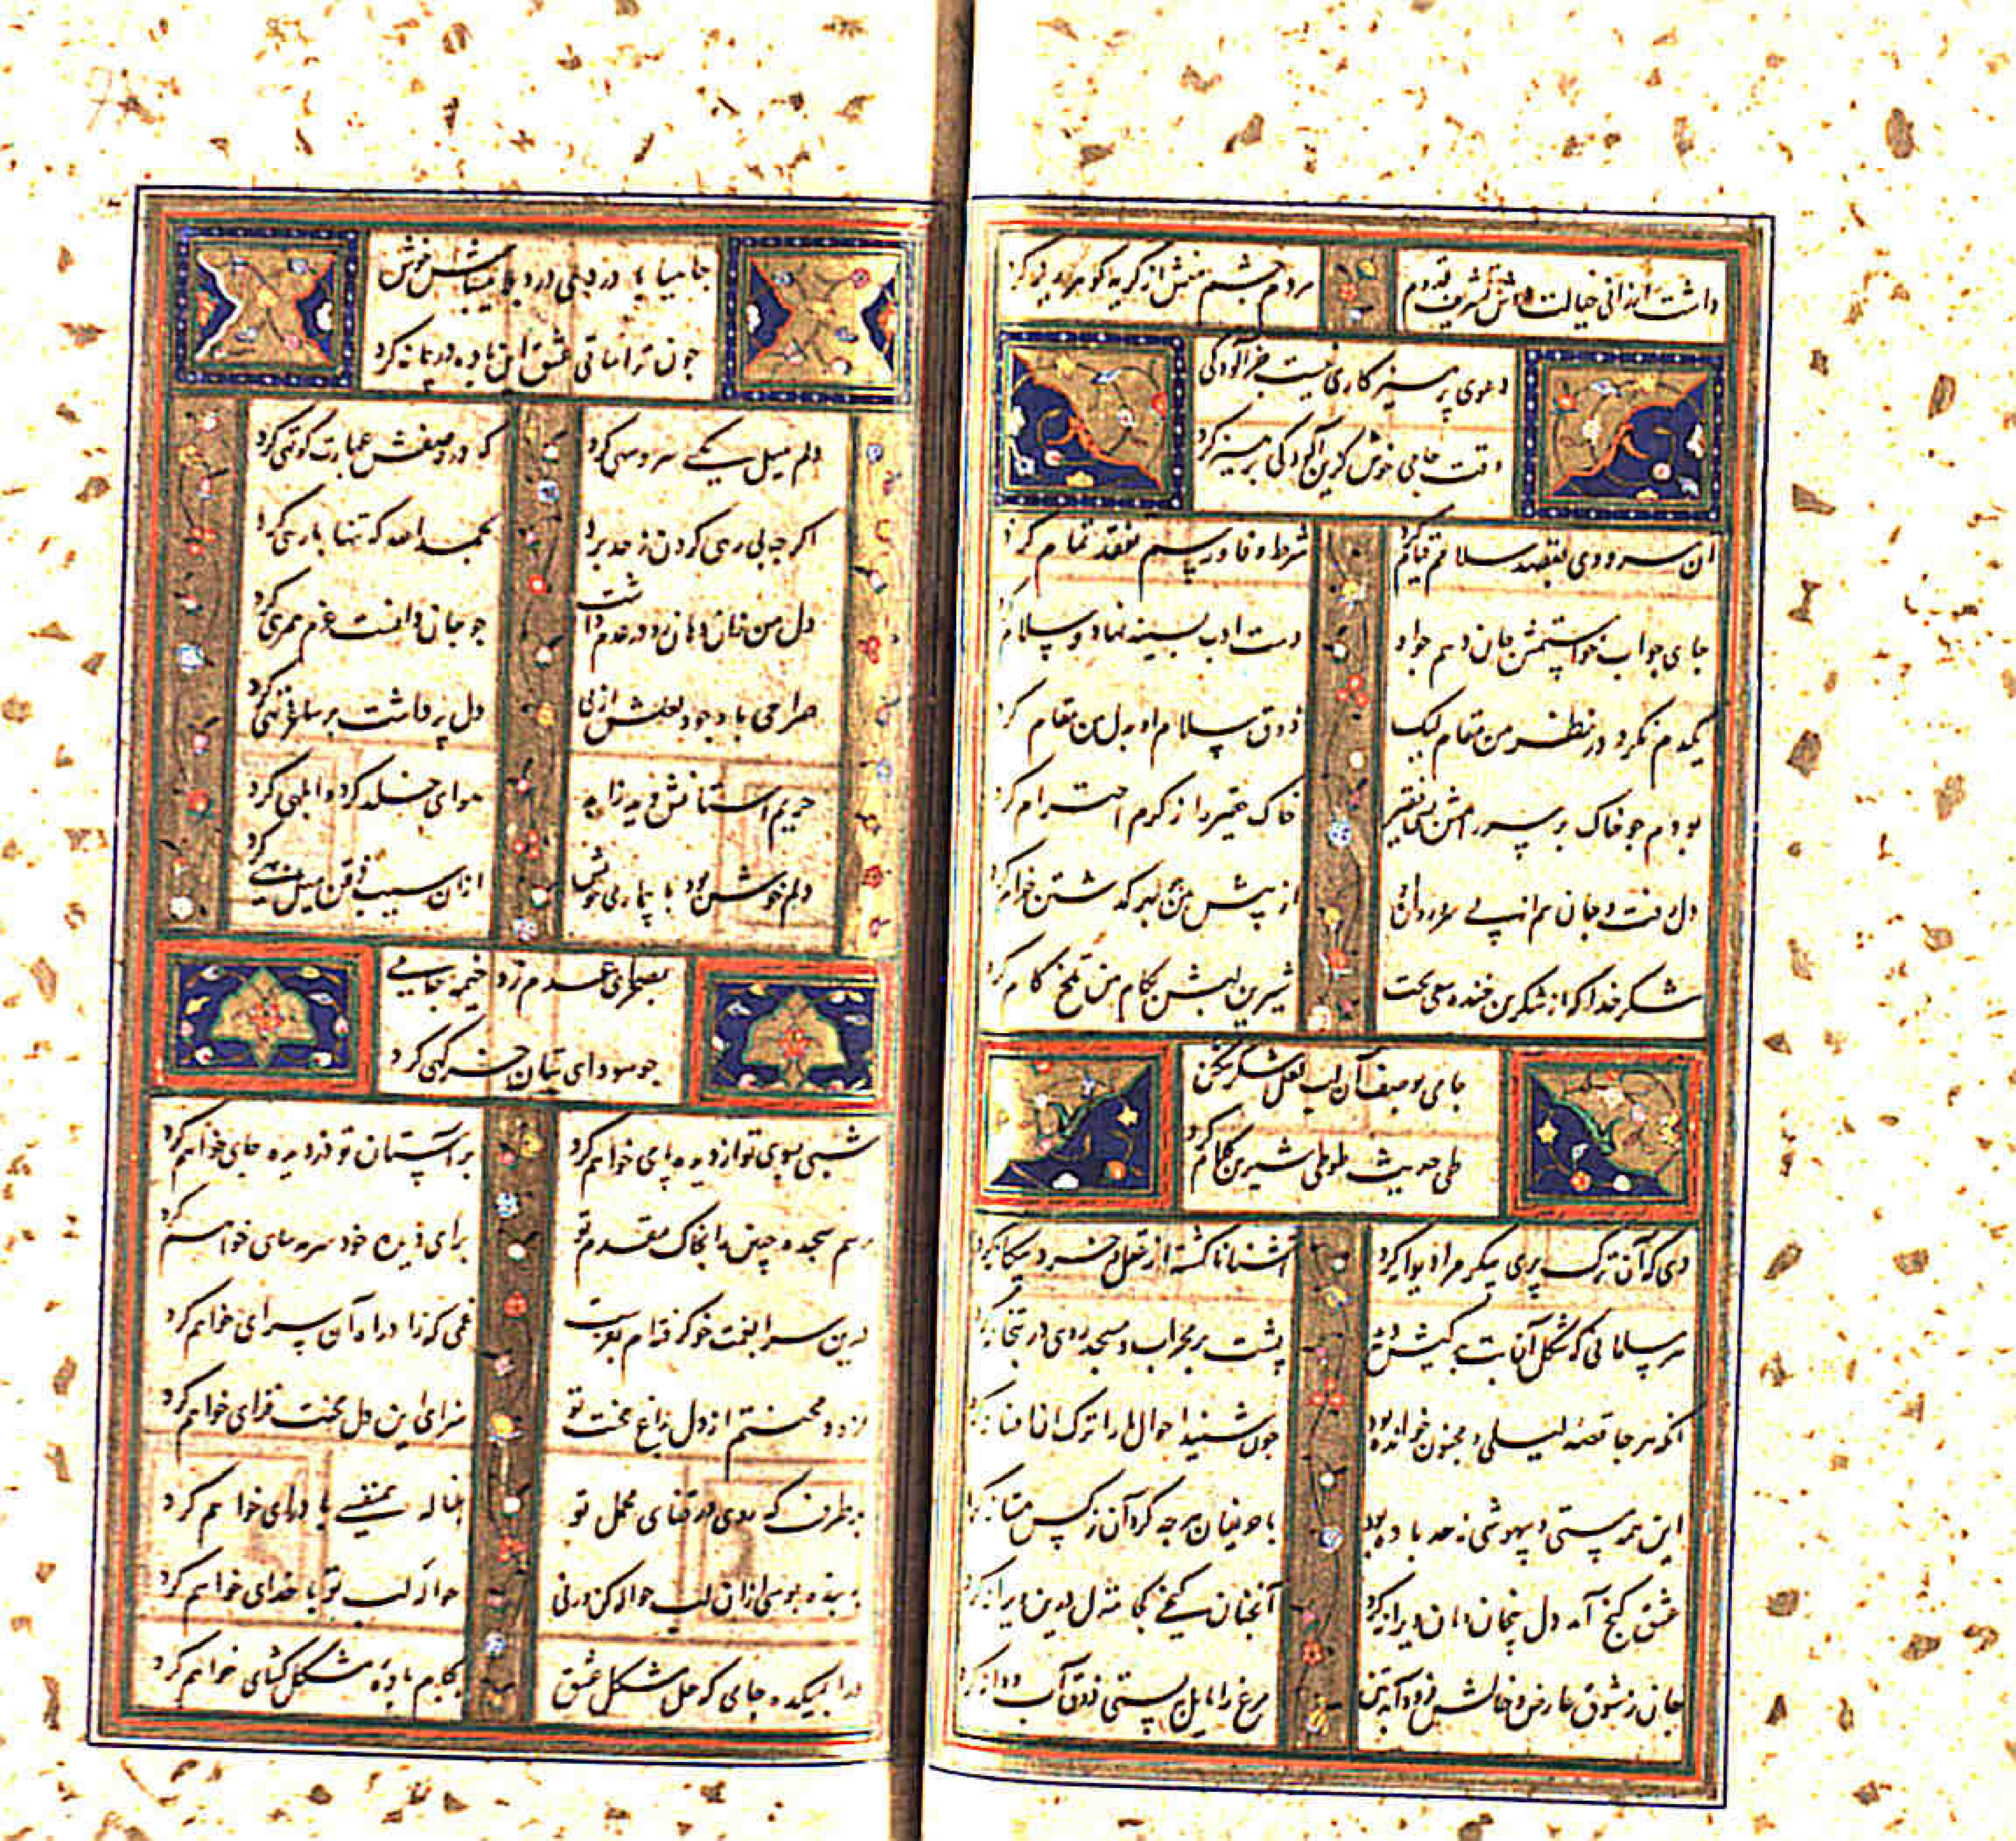 داشت ارزانی خیالت دوش تشریف قدوم
مردم چشم منش از گریه گوهرریز کرد
دعوی پرهیزکاری نیست جز آلودگی
وقت جامی خوش کزین آلودگی پرهیز کرد
آن سرو دی بقصد سلامم قیام کرد
شرط وفا و رسم تفقد تمام کرد
جای جواب خواستمش جان دهم جو او
دست ادب بسینه نهاد و سلام کرد
یکدم نکرد در نظر من مقام لیک
ذوق سلام او بدل من مقام کرد
بودم جو خاک بر سر راهش بسی فقیر
خاک فقیر را ز کرم احترام کرد
دل رفت و جان هم از پی سرو روان او
از پیش من جو کذشتن خرام کرد
شکر خدا که از شکرین خنده سعی بخت
شیرین لبش بکام من تلخ کام کرد
جامی بوصف آن لب لعل شکرشکن
طی حدیث طوطی شیرین کلام کرد
دی که آن ترک پری پیکر مرا دیوانه کرد
آشنا ناکشته از عقل و خرد بیکانه کرد
هر مسلمانی که شکل آن بت بدکیش دید
پشت بر محراب و مسجد روی در بتخانه کرد
آنکه هر جا قصه لیلی و مجنون خوانده بود
جون شنید احوال ما را ترک آن افسانه کرد
این همه مستی و بیهوشی نه حد باده بود
با حریفان هر جه کرد آن نرکس مستانه کرد
عشق کنج آمد دل بنجان مان ویرانه کرد
آنجنان کنجی کجا منزل درین ویرانه کرد
جان ز شوق عارض و خالش فرود آمد بتن
مرغ را مایل بپستی ذوق آب و دانه کرد
جامیا با درد می درد بامیناش خوش
جون ترا ساقی عشق این باده در پیمانه کرد
دلم میل یکی سرو سهی کرد
که در وصفش عبارت کوتهی کرد
اکر جه بی رهی کردن ز حد برد
بحمد الله که تنها با رهی کرد
دل من زان دهان رو در عدم داشت
جو جان دانست عزم همرهی کرد
صراحی با وجود لعلش از می
دل پر داشت بر ساغر تهی کرد
حریم آستانش دید زاهد
هوای خلد کرد و ابلهی کرد
دلم خوش بود با بیماری خویش
از آن سیب ذقن میل بهی کرد
بصحرای عدم زد خیمه جامی
جو سودای بتان خرکهی کرد
شبی بسوی تو از دیده پای خواهم کرد
بر آستان تو در دیده جای خواهم کرد
رسم سجده و جبین را بخاک مقدم تو
برای دیده خود سرمه سای خواهم کرد
درین سرا الفت خو کرفته‌ام بغمت
غمی که زاد در آن سرای خواهم کرد
نزدود محنتم از دل داغ محنت تو
سزای این دل محنت فزای خواهم کرد
بهر طرف که روی در قفای محمل تو
بناله همنفسی با درای خواهم کرد
بنده بوسی از آن لب حواله کن ورنی
حواله لب تو با خدای خواهم کرد
درا بمیکده جامی که حل مشکل عشق
بجام باده مشکل کشای خواهم کرد